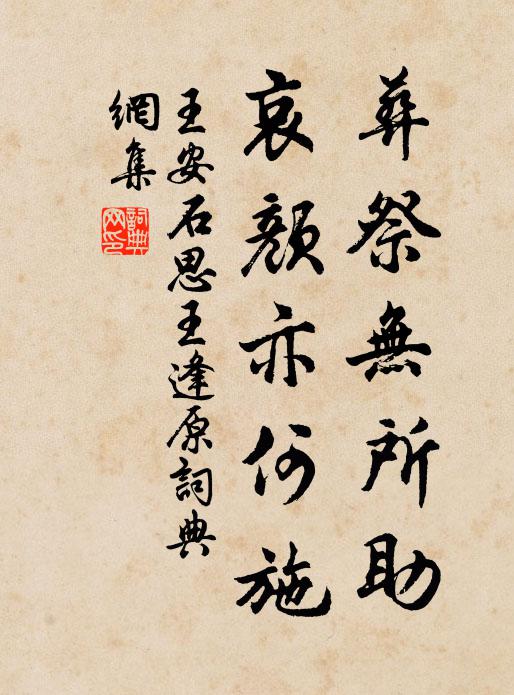 葬祭無所助
哀顏亦何施
王安石思王逢原詞典
網集
詞典
网印